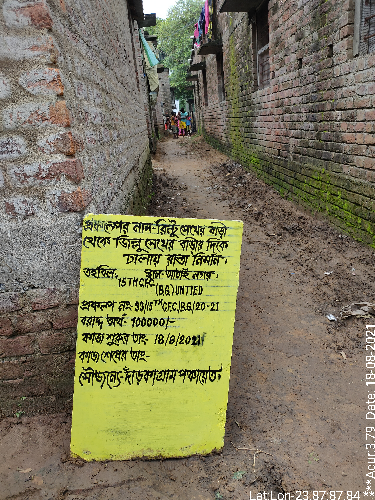 প্রকল্পের নাম-রিন্টু সেখের বাড়ী
থেকে জিল্লু সেখের বাড়ীর দিকে
ঢালাই রাস্তা নির্মান,
তহবিল,
15TH CFC
(BG) UNTIED
প্রকল্প নং 33/15TH CFC/BG/20-21
বরাদ্দ অর্থ- 100000/-
কাজ শুরুর তাং- 18/8/2021
কাজ শেষের তাং-
সৌজন্যে-দাঁড়কাগ্রাম পঞ্চায়েত
Lat Lon-23.87:87.94***
***Acur:3.79 Date, 18-08-2021